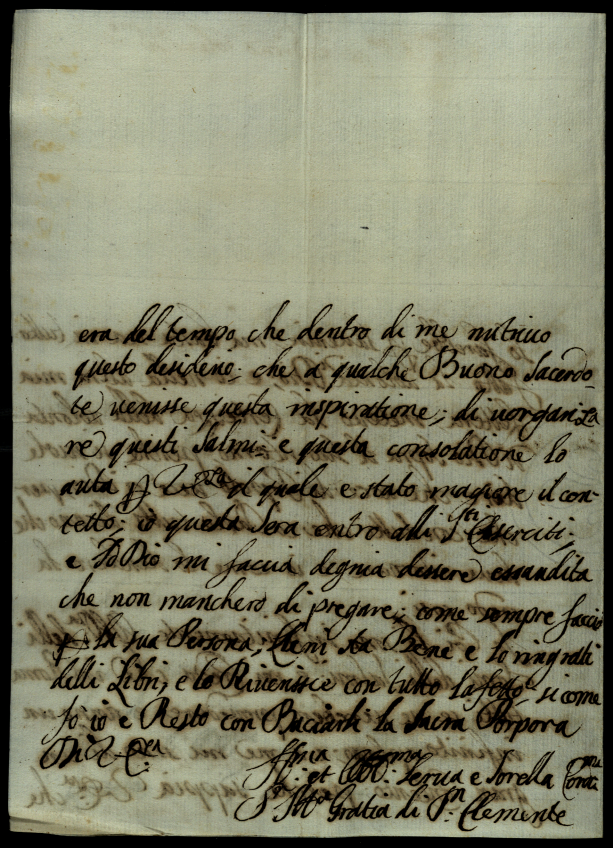 era del tempo che dentro di me nutrivo
questo desiderio; che a qualche Buono Sacerdo
te venisse questa inspiratione; di vorgariza
re questi Salmi; e questa consolatione lo
auta il quale e stato magiore il con-
tetto; io questa sera entro alli S.ti Eserciti;
e Dio mi faccia degnia dessere essaudita
che non manchero di pregare; come sempre faccio
la sua Persona, Bene e lo ringrati
delli Libri, e lo Riverisce con tutto si come
fo io e Resto con Baciarli la Sacra Porpora
Di V. E.za
et Serva e Sorella
Gratia di S.n Clemente